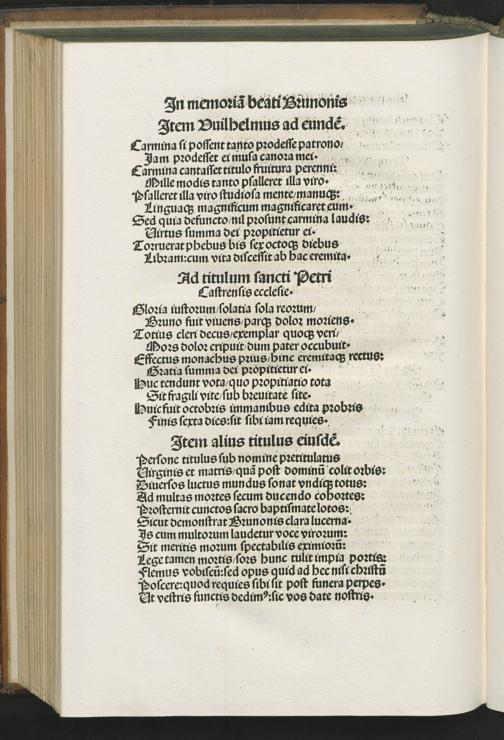 In memoriā beati Brunonis
Item Vuilhelmus ad eundē.
Carmina si possent tanto prodesse patrono/
Iam prodesset ei musa canora mei.
Carmina cantasset titulo fruitura perenni:
Mille modis tanto psalleret illa viro.
Psalleret illa viro studiosa mente/manuqꝫ:
Linguaqꝫ magnificum magnificaret eum.
Sed quia defuncto/nil prosunt carmina laudis:
Virtus summa dei propitietur ei.
Torruerat phebus bis sex octoqꝫ diebus
Libram:cum vita discessit ab hac eremita.
Ad titulum sancti Petri
Castrensis ecclesie.
Gloria iustorum/solatia sola reorum/
Bruno fuit viuens/parqꝫ dolor moriens.
Totius cleri decus/exemplar quoqꝫ veri/
Mors dolor eripuit dum pater occubuit.
Effectus monachus prius/hinc eremitaqꝫ rectus:
Gratia summa dei propitietur ei.
Huc tendunt vota/quo propitiatio tota
Sit fragili vite/sub breuitate site.
Huic fuit octobris immanibus edita probris
Finis sexta dies:sit sibi iam requies.
Item alius titulus eiusdē.
Persone titulus sub nomine pretitulatus
Virginis et matris/quā post dominū colit orbis:
Diuersos luctus mundus sonat vndiqꝫ totus:
Ad multas mortes secum ducendo cohortes:
Prosternit cunctos sacro baptismate lotos:
Sicut demonstrat Brunonis clara lucerna.
Is cum multorum laudetur voce virorum:
Sit meritis morum spectabilis eximiorū:
Lege tamen mortis/sors hunc tulit impia portis:
Flemus vobiscū:sed opus quid ad hec nisi christū
Poscere:quod requies sibi sit post funera perpes.
Ut vestris functis dedimꝰ:sic vos date nostris.